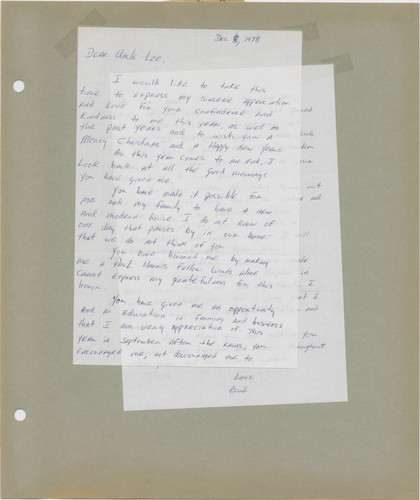 Dec 8, 1978
Dear Uncle Lee,
I would like to take this
time to express my sincere appreciation
and love for your confidence and
kindness to me this year, as well as
the past years and to wish you a
Merry Christmas and a Happy New Year.
As this year comes to an end, I
look back at all the good memories
you have given me.
You have made it possible for
me and my family to have a new
and modern house. I do not know of
one day that passes by in our home
that we do not think of you
You have honored me by making
me a Paul Harris Fellow words alone
cannot express my gratefulness for this
honor.
You have given me an opportunity
and an education in farming and business
that I am very appreciative of. This
year in September after the rains, you
encouraged me, not discouraged me to
Love